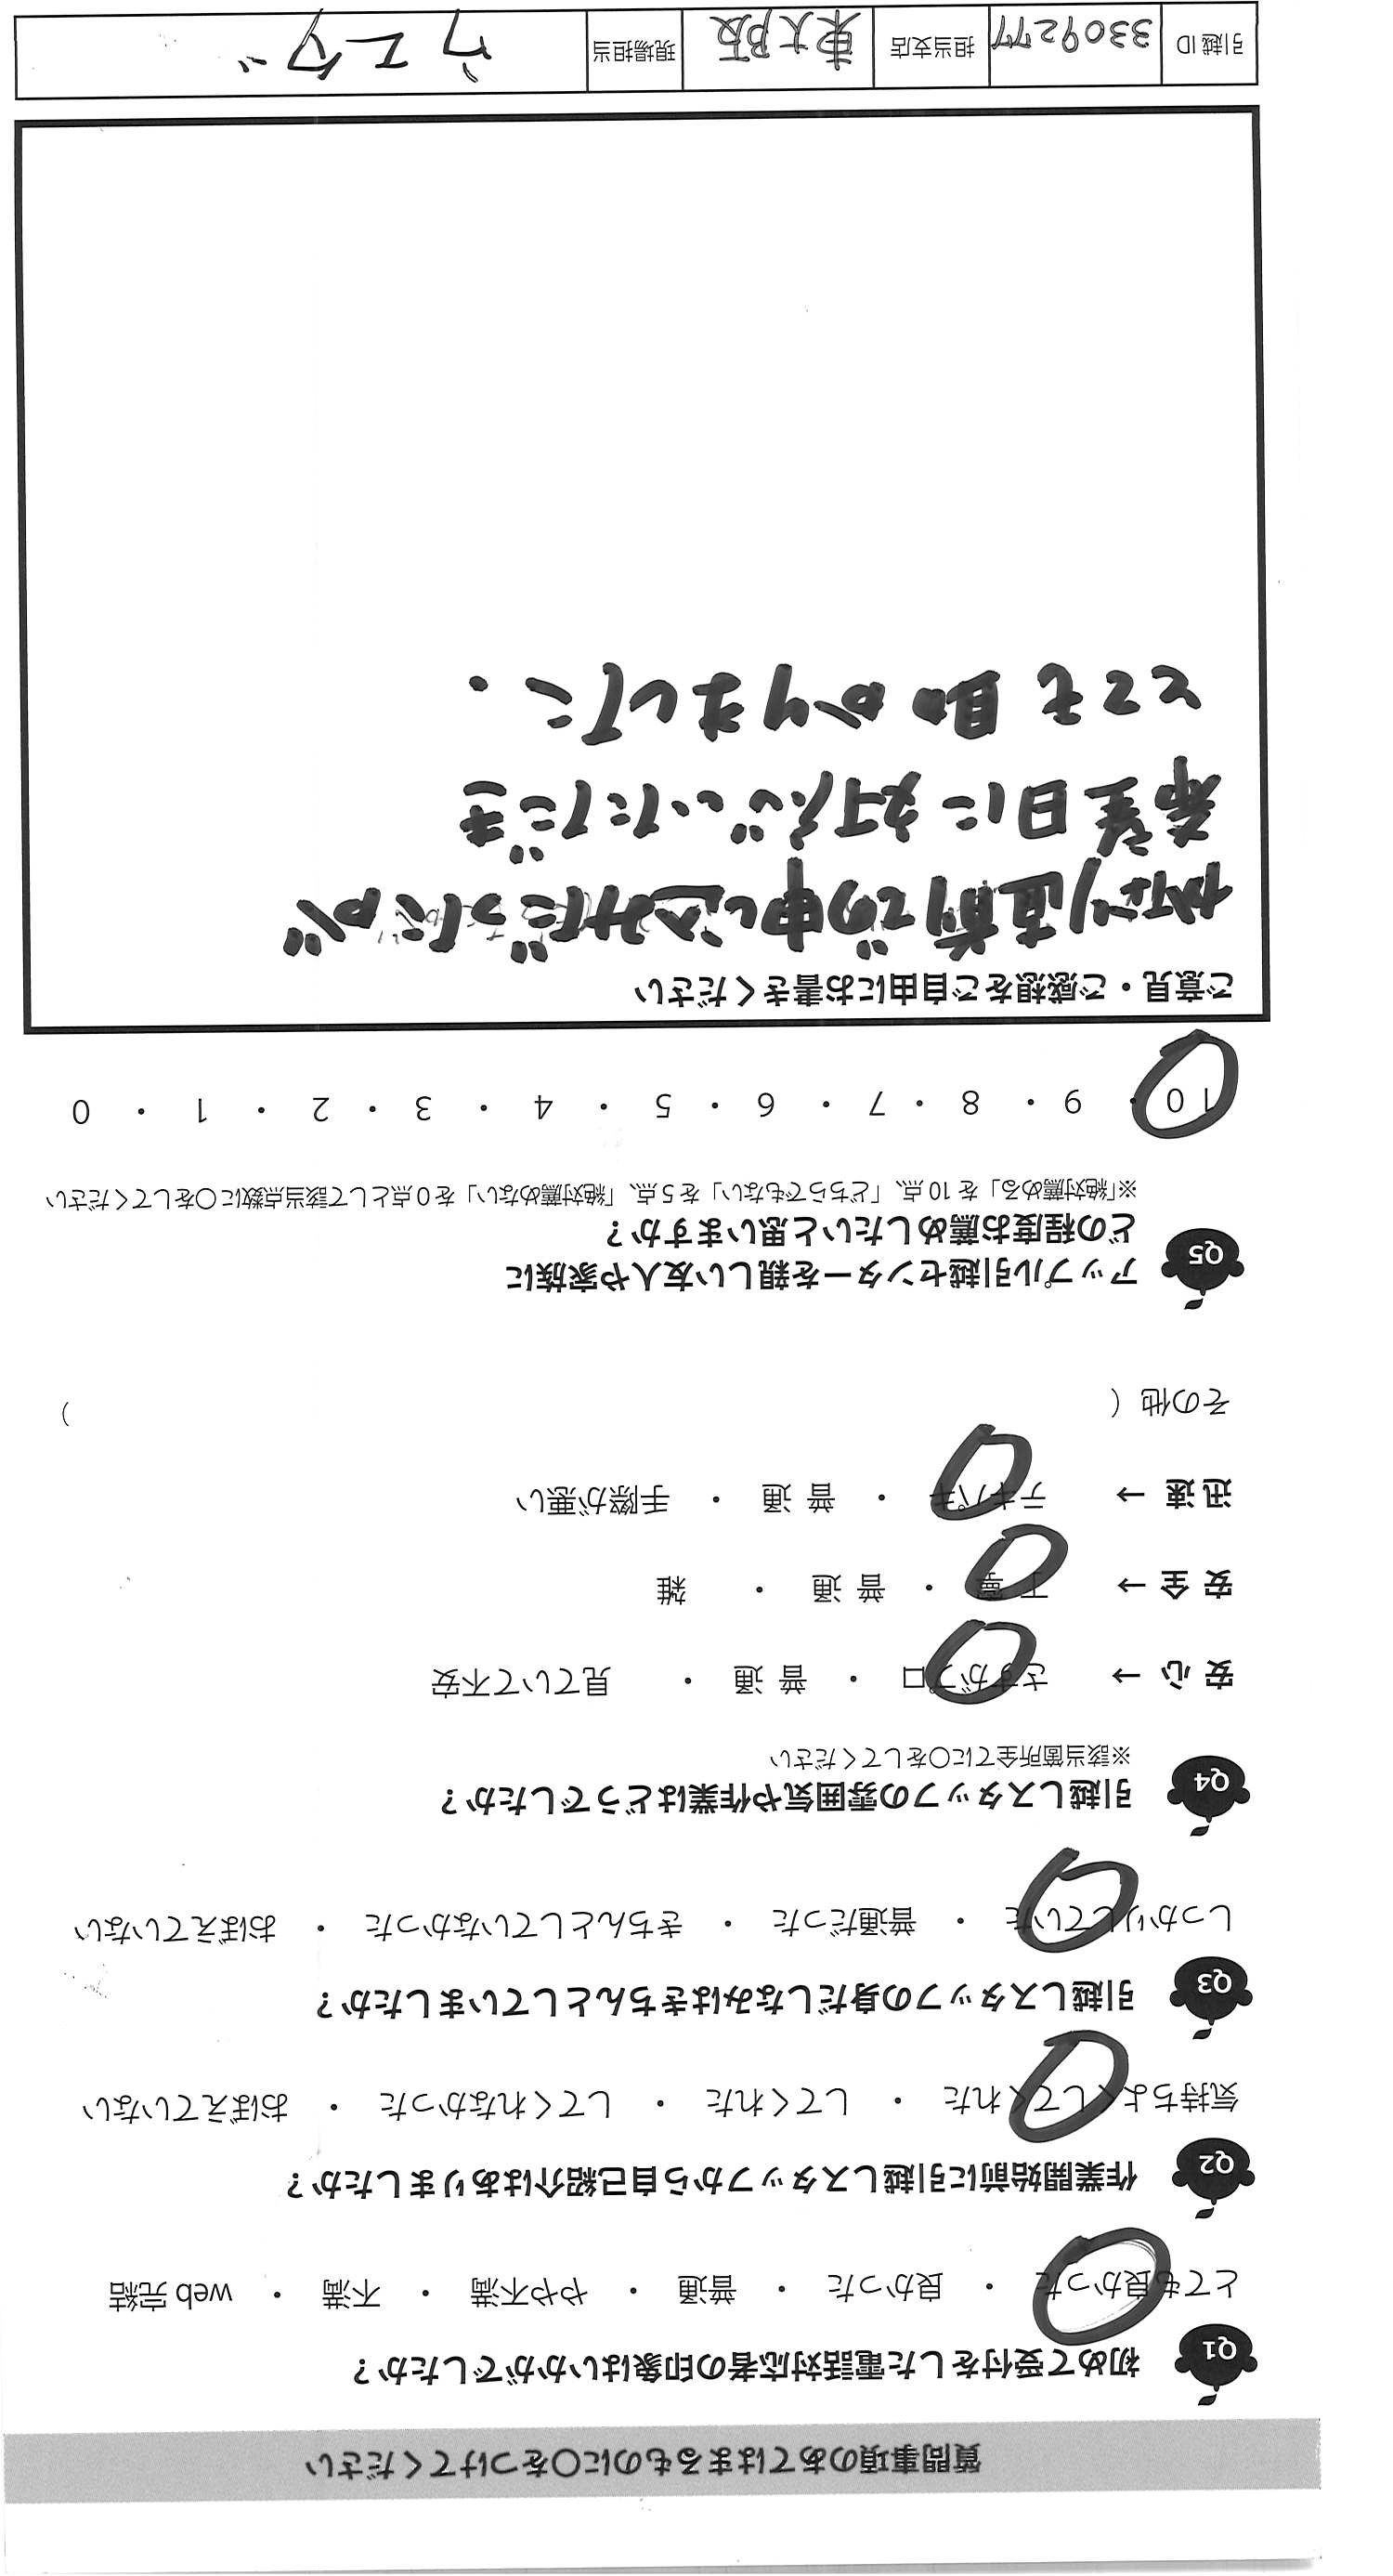 質問事項のあてはまるものに○をつけてください
Q1 初めて受付をした電話対応者の印象はいかがでしたか？
とても良かった ・ 良かった ・ 普通 ・ やや不満 ・ 不満 ・ web 完結
Q2 作業開始前に引越しスタッフから自己紹介はありましたか？
気持ちよくしてくれた ・ してくれた ・ してくれなかった ・ おぼえていない
Q3 引越しスタッフの身だしなみはきちんとしていましたか？
しっかりしていた ・ 普通だった ・ きちんとしていなかった ・ おぼえていない
Q4 引越しスタッフの雰囲気や作業はどうでしたか？
※該当箇所全てに○をしてください
安心 → さすがプロ ・ 普通 ・ 見ていて不安
安全 → 丁寧 ・ 普通 ・ 雑
迅速 → テキパキ ・ 普通 ・ 手際が悪い
その他（ ）
Q5 アップル引越センターを親しい友人や家族に
どの程度お薦めしたいと思いますか？
※「絶対薦める」を 10 点、「どちらでもない」を 5 点、「絶対薦めない」を 0 点として該当点数に○をしてください
10 ・ 9 ・ 8 ・ 7 ・ 6 ・ 5 ・ 4 ・ 3 ・ 2 ・ 1 ・ 0
ご意見・ご感想をご自由にお書きください
かなり直前での申し込みだったが
希望日に対応いただき
とても助かりました．
引越 ID 3309277 担当支店 東大阪 現場担当 ウエダ